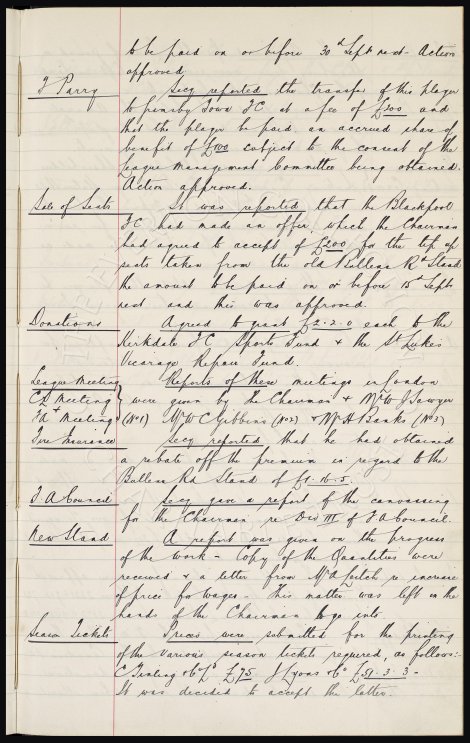 to be paid on or before 30th Sept next - Action
approved.
F Parry Secy reported the transfer of this player
to Grimsby Town FC at a fee of £300 and
that the player be paid an accrued share of
benefit of £100 subject to the consent of the
League Management Committee being obtained.
Action approved.
Sale of Seats It was reported that the Blackpool
FC had made an offer, which the Chairman
had agreed to accept of £200 for the tip up
seats taken from the old Bullens Rd Stand
the amount to be paid on or before 15th Sept
next and this was approved.
Donations Agreed to grant £2.2.0 each to the
Kirkdale FC Sports Fund & the St Lukes
Vicarage Repair Fund.
League Meeting Reports of these meetings in London
CS Meeting were given by the Chairman & Mr W J Sawyer
FA Meeting (No1) Mr W C Gibbins (No2) & Mr H Banks (No3)
Fire Insurance Secy reported that he had obtained
a rebate off the premium in regard to the
Bullens Rd Stand of £9.16.5.
F A Council Secy gave a report of the canvassing
for the Chairman re Div III of F A Council.
New Stand A report was given on the progress
of the work - Copy of the Quantities were
received & a letter from Mr A Leitch re increase
of price for wages - This matter was left in the
hands of the Chairman to go into.
Season Tickets Prices were submitted for the printing
of the various season tickets required, as follows:-
C Tinling & Co Ld £75. J Lyons & Co £51.3.3 -
It was decided to accept the latter.